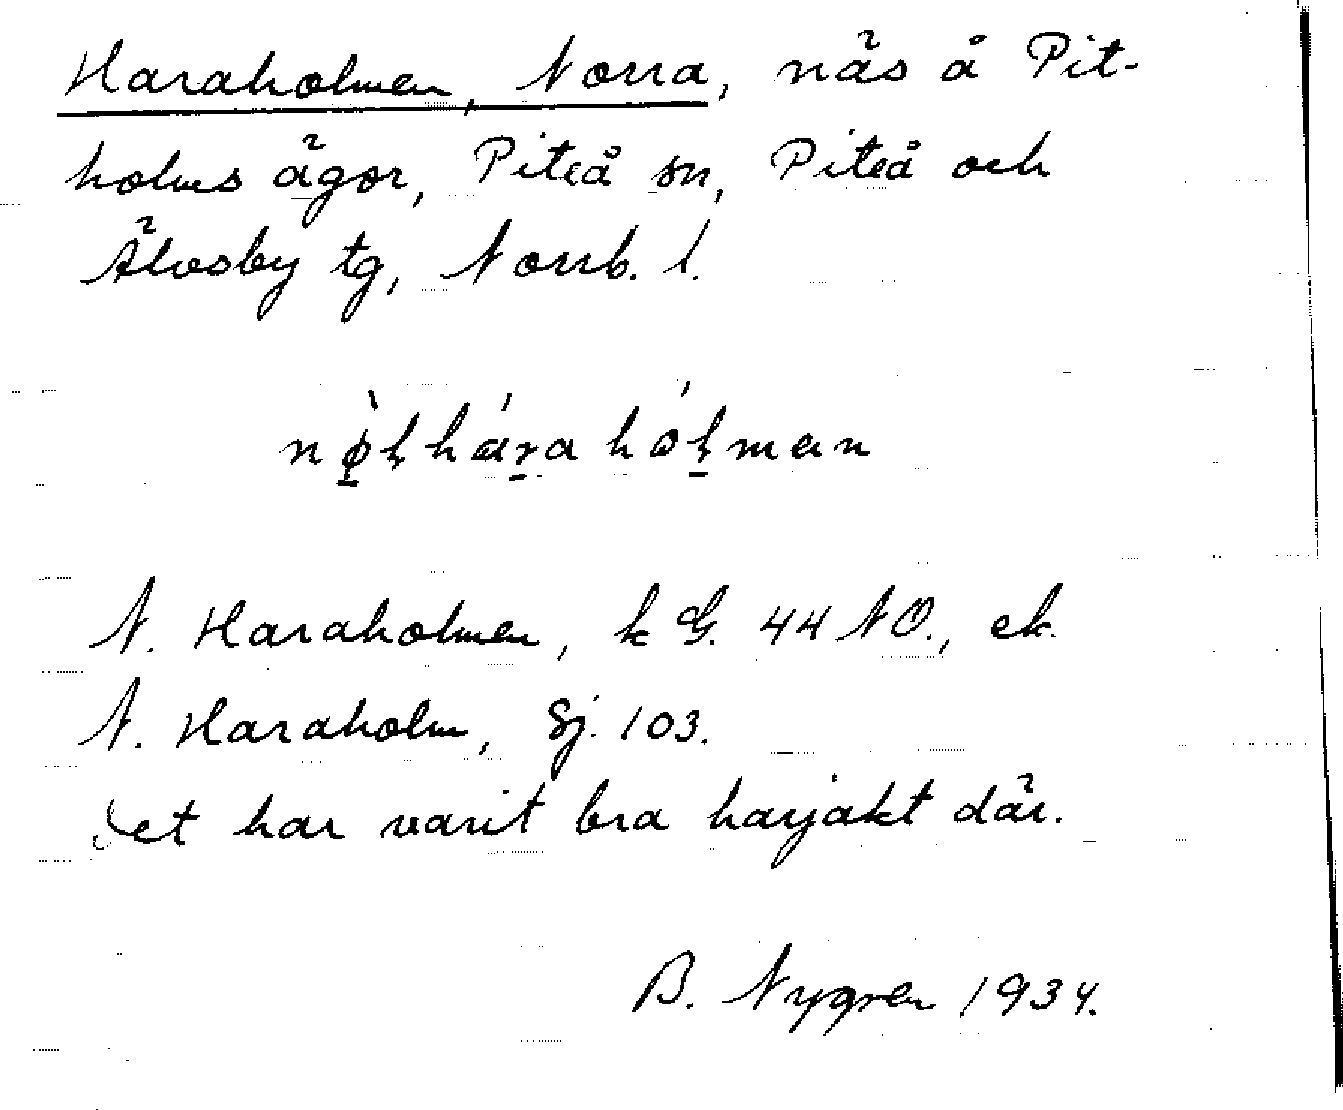 Haraholmen, Norra, näs å Pit-
holms ägor, Piteå sn, Piteå och
Älvsby tg, Norrb. l.
N. Haraholmen, k G. 44 NO., ek.
N. Haraholm, Sj. 103.
Det har varit bra harjakt där.
B. Nygren 1934.